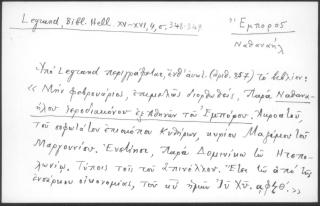 Legrand, Bibl. Hell. XV-XVI, 4, σ. 348-349
Ἔμπορος
Ναθαναήλ
Ὑπὸ Legrand περιγράφεται, ἔνθ' ἀνωτ. (ἀριθ. 857) τὸ βιβλίον:
« Μὴν φεβρουάριος, ἐπιμελῶς διορθωθείς, Παρὰ Ναθανα-
ήλου ἱεροδιακόνου ἐξ Ἀθηνῶν τοῦ Ἐμπόρου,
τοῦ σοφωτάτου ἐπισκόπου Κυθήρων, κυρίου Μαξίμου τοῦ
Μαργουνίου. Ἐνετίησι, παρὰ Δομινίκῳ τῷ
Τύποις τοῖς τοῦ Σπινέλλου. Ἔτει τῷ ἀπὸ τῆς
ἐνσάρκου οἰκονομίας, τοῦ κυ ἡμῶν Ἰυ Χυ. »